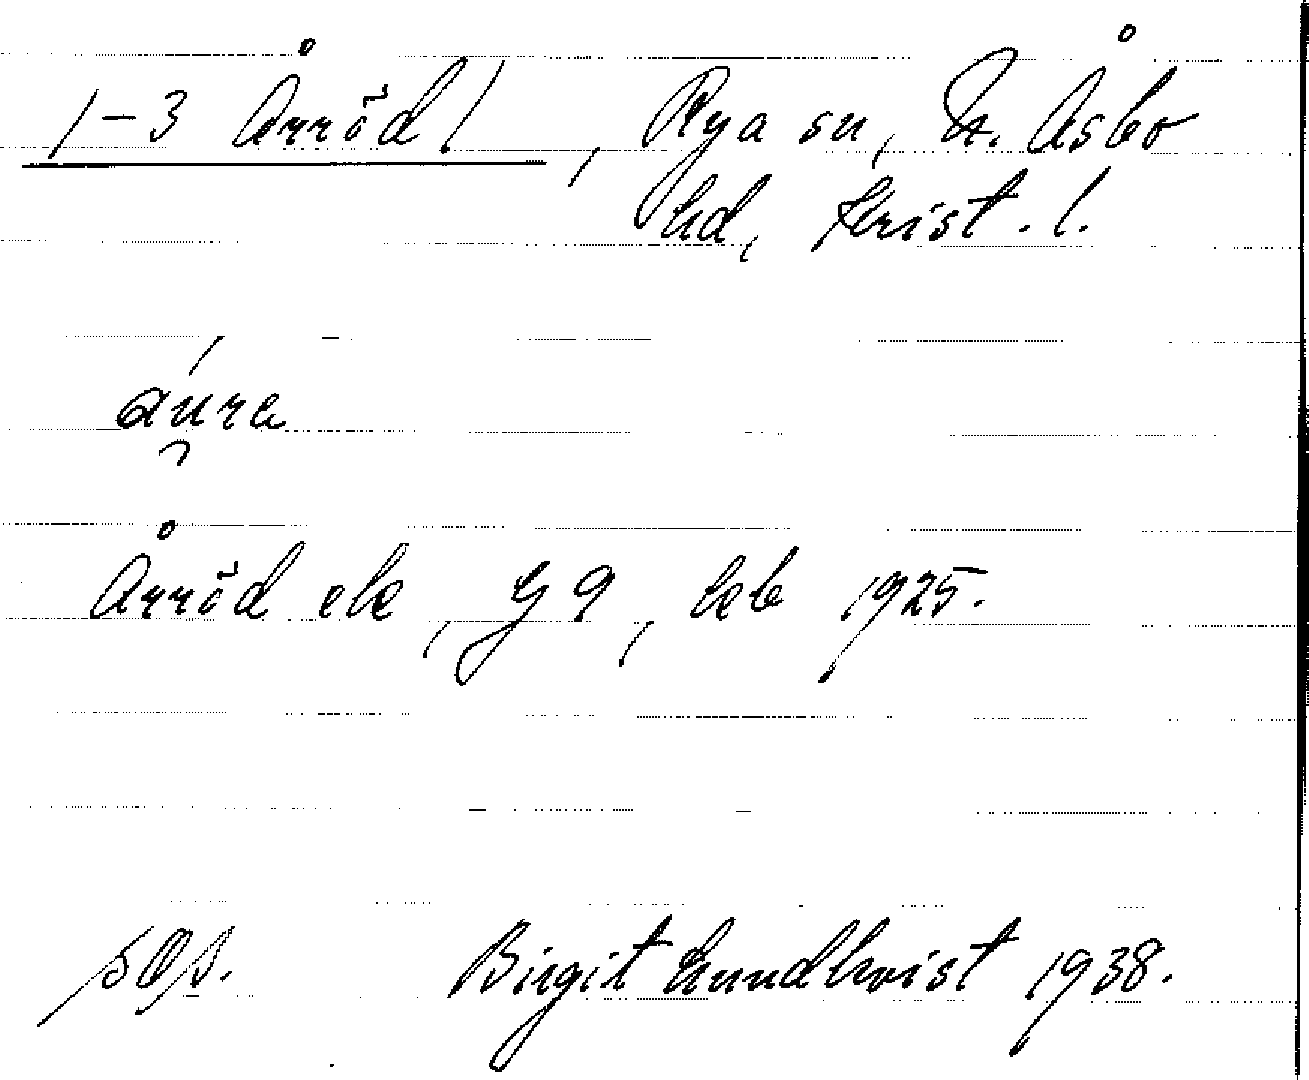 1-3 Årröd /, Rya sn, N. Åsbo
hd, Krist. l.
áu̯re
Årröd ek, G 9, kb 1925.
søs. Birgit Lundkvist 1938.